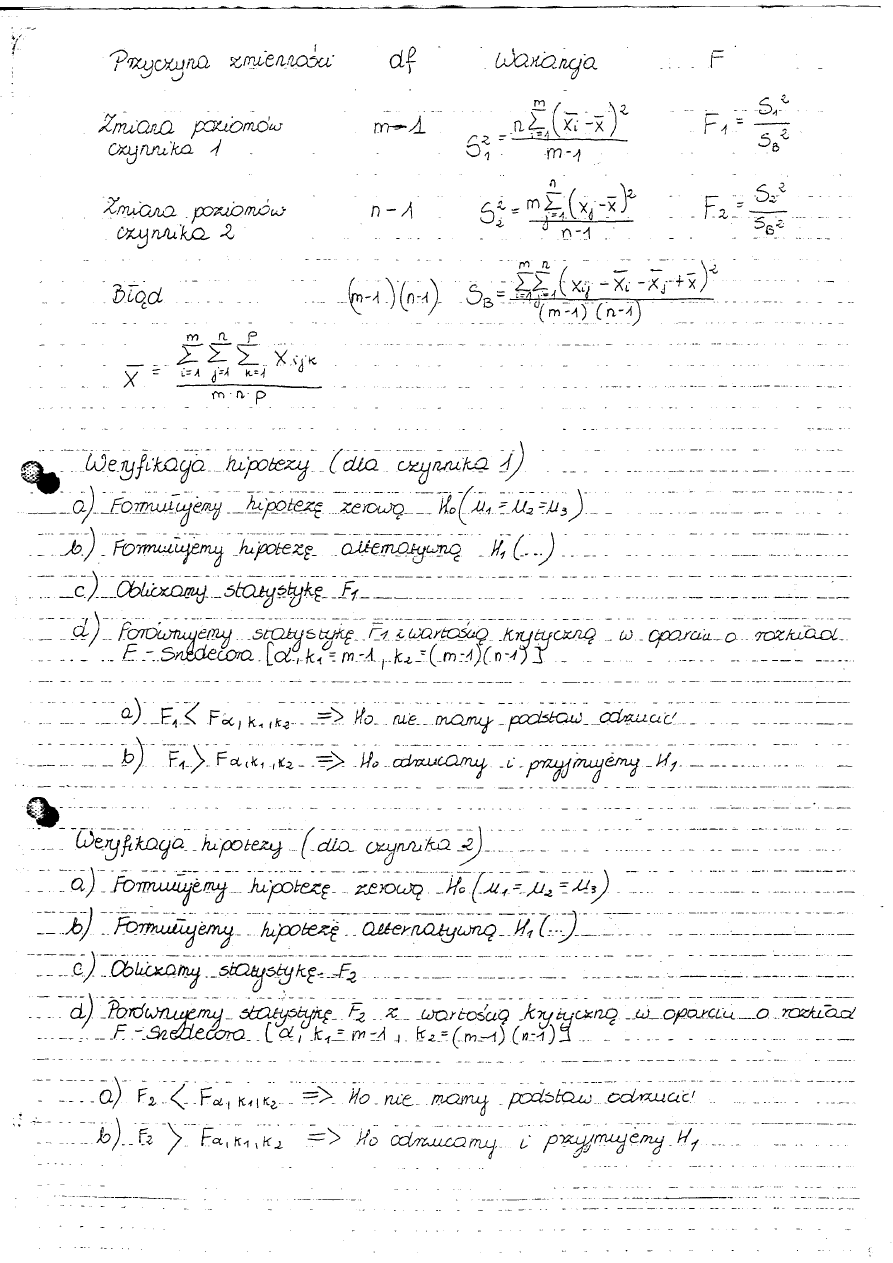 Przyczyna zmienności df Wariancja F
Zmiana poziomów czynnika 1 m-1 S₁² = n∑ᵢ₌₁ᵐ(x̄i - x̄)² / m-1 F₁ = S₁² / S_B²
Zmiana poziomów czynnika 2 n-1 S₂² = m∑ⱼ₌₁ⁿ(xj - x̄)² / n-1 F₂ = S₂² / S_B²
Błąd (m-1)(n-1) S_B = ∑ᵢ₌₁ᵐ∑ⱼ₌₁ⁿ(xij - x̄i - x̄j + x̄)² / (m-1)(n-1)
x̄ = ∑ᵢ₌₁ᵐ ∑ⱼ₌₁ⁿ ∑ₖ₌₁ᵖ Xijk / m·n·p
Weryfikacja hipotezy (dla czynnika 1)
a) Formułujemy hipotezę zerową H₀(μ₁=μ₂=μ₃)
b) Formułujemy hipotezę alternatywną H₁(...)
c) Obliczamy statystykę F₁
d) Porównujemy statystykę F₁ z wartością krytyczną w oparciu o rozkład
F-Snedecora [α, k₁=m-1, k₂=(m-1)(n-1)]
a) F₁ < Fα,k₁,k₂ => H₀ nie mamy podstaw odrzucić
b) F₁ > Fα,k₁,k₂ => H₀ odrzucamy i przyjmujemy H₁
Weryfikacja hipotezy (dla czynnika 2)
a) Formułujemy hipotezę zerową H₀(μ₁=μ₂=μ₃)
b) Formułujemy hipotezę alternatywną H₁(...)
c) Obliczamy statystykę F₂
d) Porównujemy statystykę F₂ z wartością krytyczną w oparciu o rozkład
F-Snedecora [α, k₁=m-1, k₂=(m-1)(n-1)]
a) F₂ < Fα,k₁,k₂ => H₀ nie mamy podstaw odrzucić
b) F₂ > Fα,k₁,k₂ => H₀ odrzucamy i przyjmujemy H₁